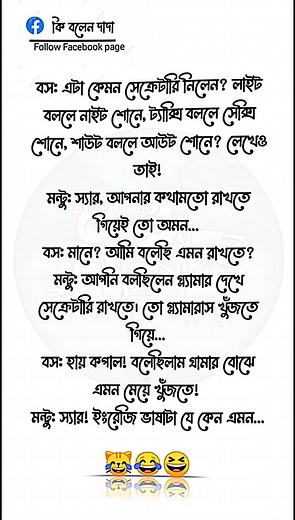 কি বলেন দাদা
Follow Facebook page
বস: এটা কেমন সেক্রেটারি নিলেন? লাইট
বললে নাইট শোনে, ট্যাক্সি বললে সেক্সি
শোনে, শাউট বললে আউট শোনে? লেখেও
তাই!
মন্টু: স্যার, আপনার কথামতো রাখতে
গিয়েই তো অমন...
বস: মানে? আমি বলেছি এমন রাখতে?
মন্টু: আপনি বলছিলেন গ্ল্যামার দেখে
সেক্রেটারি রাখতে। তো গ্ল্যামারাস খুঁজতে
গিয়ে...
বস: হায় কপাল! বলেছিলাম গ্রামার বোঝে
এমন মেয়ে খুঁজতে!
মন্টু: স্যার! ইংরেজি ভাষাটা যে কেন এমন...